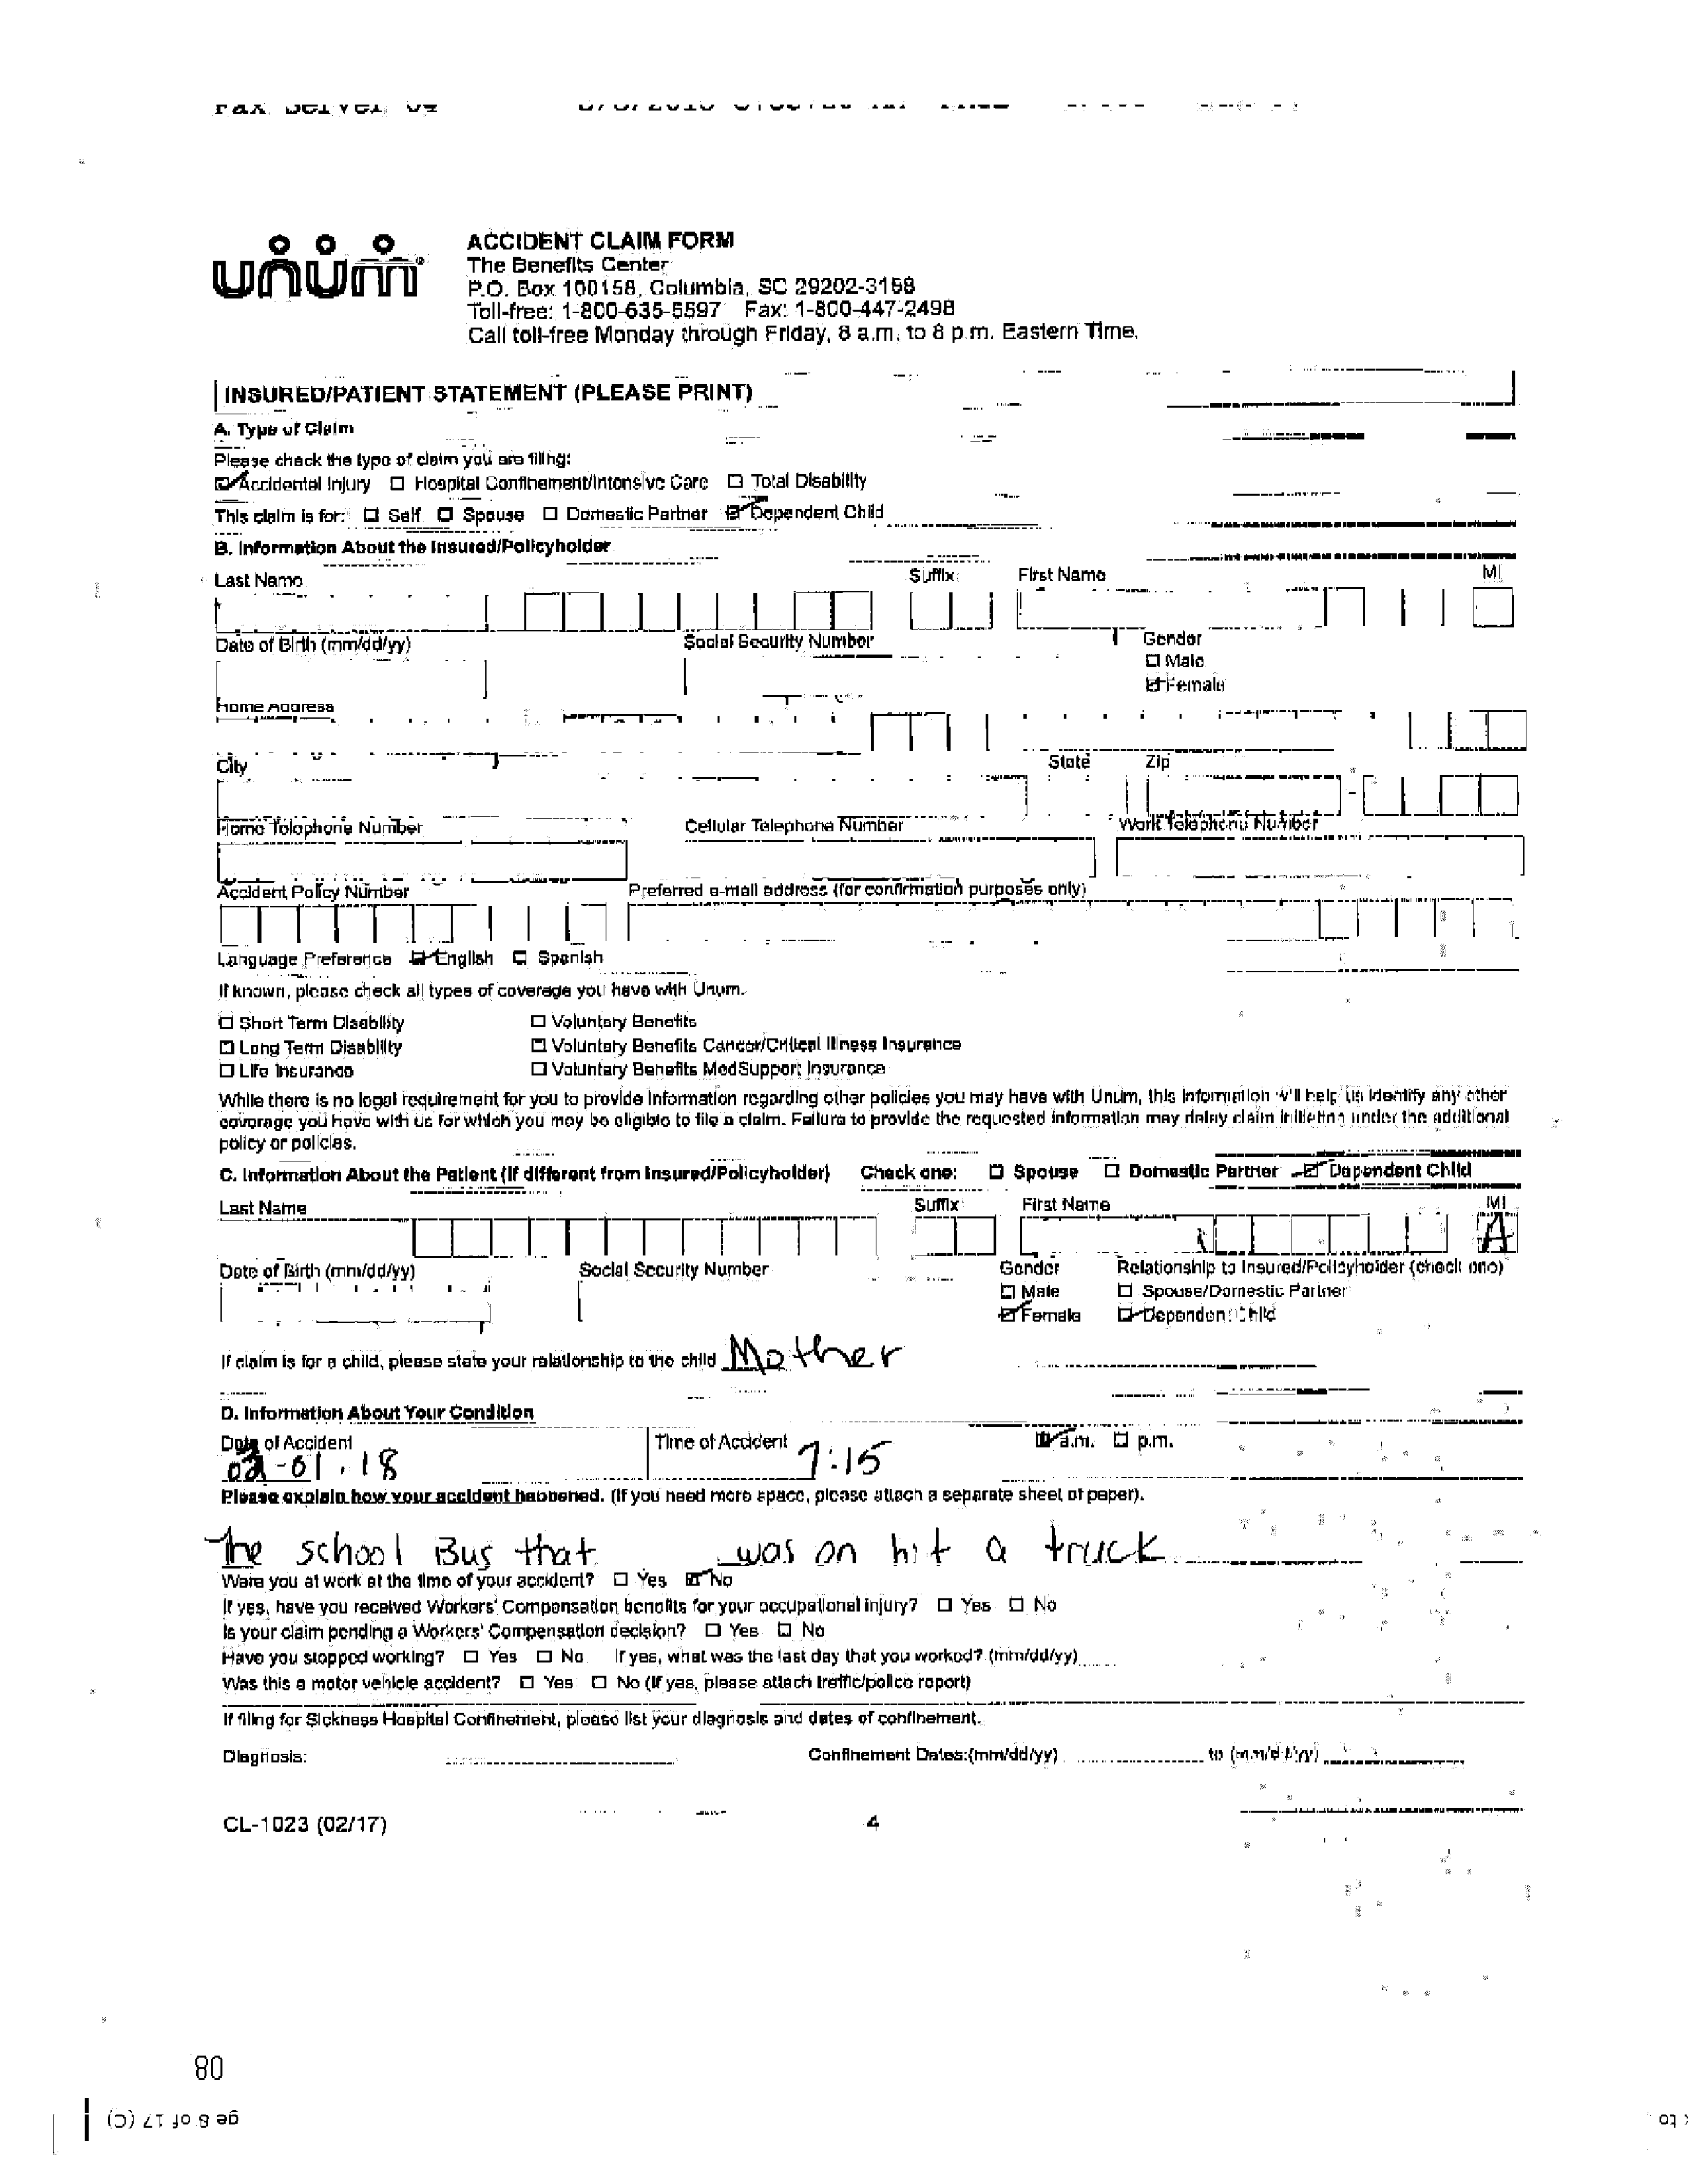 Fax Server 04
unum
ACCIDENT CLAIM FORM
The Benefits Center
P.O. Box 100158, Columbia, SC 29202-3158
Toll-free: 1-800-635-5597 Fax: 1-800-447-2498
Call toll-free Monday through Friday, 8 a.m. to 8 p.m. Eastern Time.
INSURED/PATIENT STATEMENT (PLEASE PRINT)
A. Type of Claim
Please check the type of claim you are filing:
Accidental Injury Hospital Confinement/Intensive Care Total Disability
This claim is for: Self Spouse Domestic Partner Dependent Child
B. Information About the Insured/Policyholder
Last Name Suffix First Name MI
Date of Birth (mm/dd/yy) Social Security Number Gender
Male
Female
Home Address
City State Zip
Home Telephone Number Cellular Telephone Number Work Telephone Number
Accident Policy Number Preferred e-mail address (for confirmation purposes only)
Language Preference English Spanish
If known, please check all types of coverage you have with Unum.
Short Term Disability Voluntary Benefits
Long Term Disability Voluntary Benefits Cancer/Critical Illness Insurance
Life Insurance Voluntary Benefits MedSupport Insurance
While there is no legal requirement for you to provide information regarding other policies you may have with Unum, this information will help us identify any other
coverage you have with us for which you may be eligible to file a claim. Failure to provide the requested information may delay claim initiating under the additional
policy or policies.
C. Information About the Patient (If different from Insured/Policyholder) Check one: Spouse Domestic Partner Dependent Child
Last Name Suffix First Name MI
A
Date of Birth (mm/dd/yy) Social Security Number Gender Relationship to Insured/Policyholder (check one)
Male Spouse/Domestic Partner
Female Dependent Child
If claim is for a child, please state your relationship to the child Mother
D. Information About Your Condition
Date of Accident Time of Accident a.m. p.m.
02-01.18 7:15
Please explain how your accident happened. (If you need more space, please attach a separate sheet of paper).
The school Bus that was on hit a truck
Were you at work at the time of your accident? Yes No
If yes, have you received Workers' Compensation benefits for your occupational injury? Yes No
Is your claim pending a Workers' Compensation decision? Yes No
Have you stopped working? Yes No If yes, what was the last day that you worked? (mm/dd/yy)
Was this a motor vehicle accident? Yes No (If yes, please attach traffic/police report)
If filing for Sickness Hospital Confinement, please list your diagnosis and dates of confinement.
Diagnosis: Confinement Dates:(mm/dd/yy) to (mm/dd/yy)
CL-1023 (02/17) 4
80
ge 8 of 17 (C)